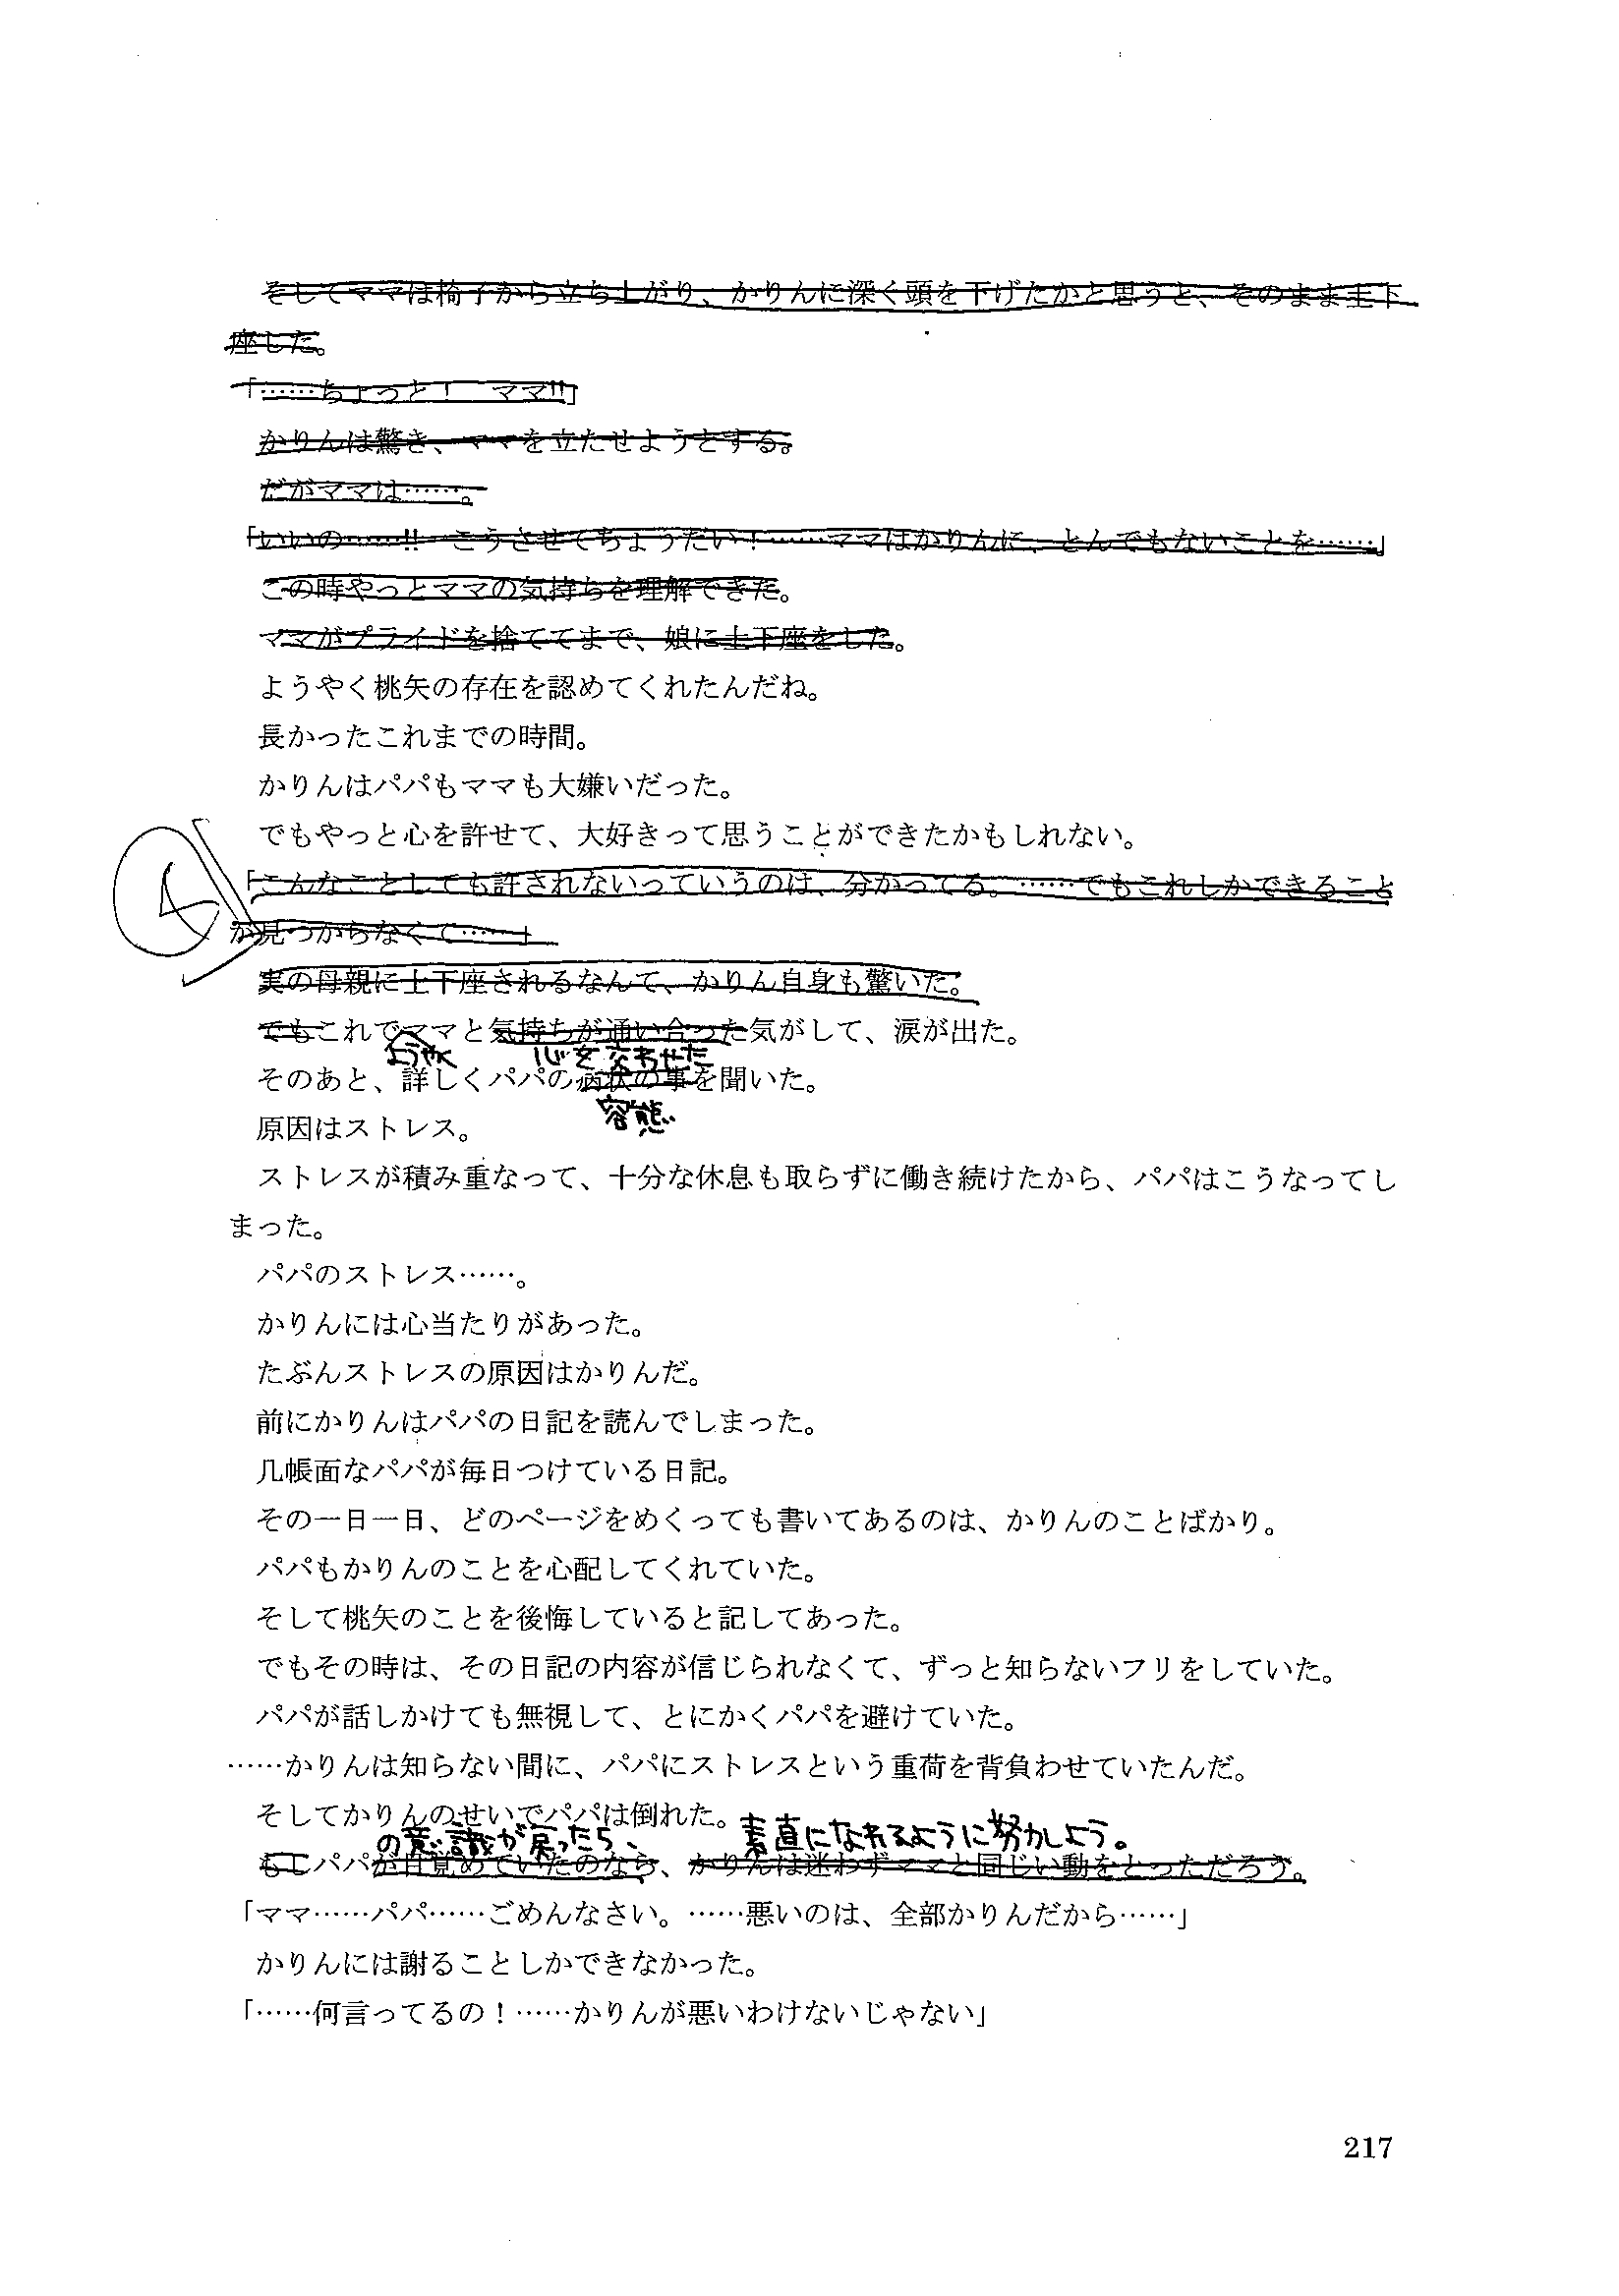 そしてママは椅子から立ち上がり、かりんに深く頭を下げたかと思うと、そのまま土下
座した。
「……ちょっと！　ママ!!」
かりんは驚き、ママを立たせようとする。
だがママは……。
「いいの……!!　こうさせてちょうだい！……ママはかりんに、とんでもないことを……」
この時やっとママの気持ちを理解できた。
ママがプライドを捨ててまで、娘に土下座をした。
ようやく桃矢の存在を認めてくれたんだね。
長かったこれまでの時間。
かりんはパパもママも大嫌いだった。
でもやっと心を許せて、大好きって思うことができたかもしれない。
「こんなことしても許されないっていうのは、分かってる。……でもこれしかできること
が見つからなくて……」
実の母親に土下座されるなんて、かりん自身も驚いた。
でもこれでママと気持ちが通い合った気がして、涙が出た。
ようやく　心を交わせた
そのあと、詳しくパパの病状の事を聞いた。
容態
原因はストレス。
ストレスが積み重なって、十分な休息も取らずに働き続けたから、パパはこうなってし
まった。
パパのストレス……。
かりんには心当たりがあった。
たぶんストレスの原因はかりんだ。
前にかりんはパパの日記を読んでしまった。
几帳面なパパが毎日つけている日記。
その一日一日、どのページをめくっても書いてあるのは、かりんのことばかり。
パパもかりんのことを心配してくれていた。
そして桃矢のことを後悔していると記してあった。
でもその時は、その日記の内容が信じられなくて、ずっと知らないフリをしていた。
パパが話しかけても無視して、とにかくパパを避けていた。
……かりんは知らない間に、パパにストレスという重荷を背負わせていたんだ。
そしてかりんのせいでパパは倒れた。
の意識が戻ったら、　素直になれるように努力しよう。
もしパパが目覚めていたのなら、かりんは迷わずママと同じい動をとっただろう。
「ママ……パパ……ごめんなさい。……悪いのは、全部かりんだから……」
かりんには謝ることしかできなかった。
「……何言ってるの！……かりんが悪いわけないじゃない」
217